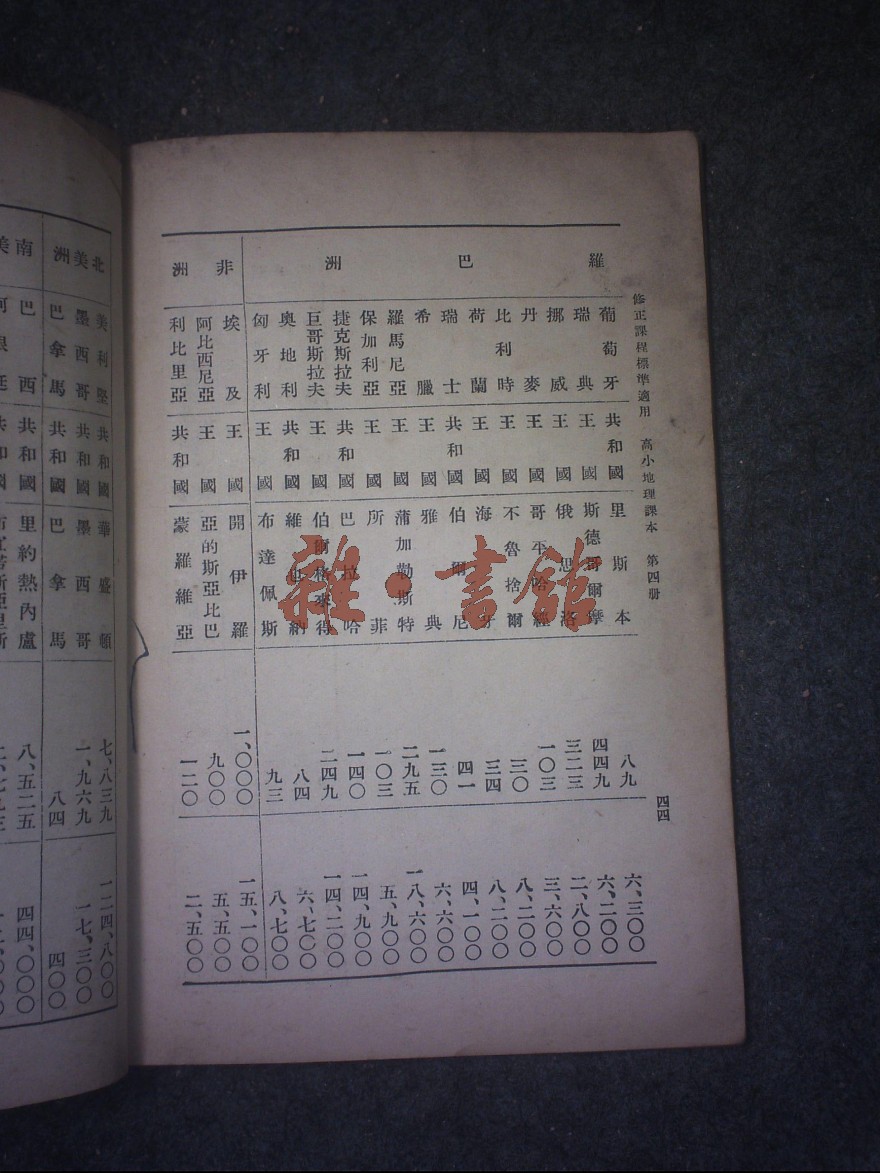 修正課程標準適用 高小地理課本 第四册 四四
羅巴洲
葡萄牙 共和國 里斯本 八九 六、三〇〇
瑞典 王國 斯德哥爾摩 四四九 六、二〇〇
挪威 王國 俄思洛 三二三 二、八〇〇
丹麥 王國 哥平哈經 一〇三 三、六〇〇
比利時 王國 不魯捨爾 三〇 八、二〇〇
荷蘭 王國 海牙 三四 八、二〇〇
瑞士 共和國 伯爾尼 四一 四、一〇〇
希臘 王國 雅典 一三〇 六、六〇〇
羅馬尼亞 王國 蒲加勒斯特 二九五 一八、六〇〇
保加利亞 王國 所菲 一〇三 五、九〇〇
捷克斯拉夫 共和國 巴拉哈 一四〇 一四、九〇〇
巨哥斯拉夫 王國 伯爾格來得 二四九 一四、二〇〇
奧地利 共和國 維也納 八四 六、七〇〇
匈牙利 王國 布達佩斯 九三 八、七〇〇
非洲
埃及 王國 開伊羅 一、〇〇〇 一五、一〇〇
阿比西尼亞 王國 亞的斯亞比巴 九〇〇 五、五〇〇
利比里亞 共和國 蒙羅維亞 一二〇 二、五〇〇
北美洲
美利堅 共和國 華盛頓 七、八三九 一二四、八〇〇
墨西哥 共和國 墨西哥 一、九六九 一七、三〇〇
巴拿馬 共和國 巴拿馬 八四 四〇〇
南美
巴西 共和國 里約熱內盧 八、五二五 四四、〇〇〇
雜·書館